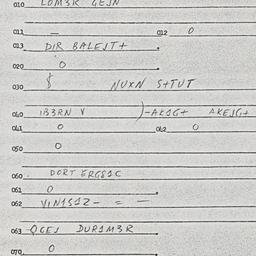 010 LOM3R GEJN
011 — 012 0
013 DIR BALEJT+
020 0
030 NUXN S+TUT
040 IB3RN V )-AKJG+ AKEJG+
041 0 042 0
050 0
060 DORT ERGS1C
061 0
062 VIN1S1Z- = -
063 QGEJ DURJM3R
070 0